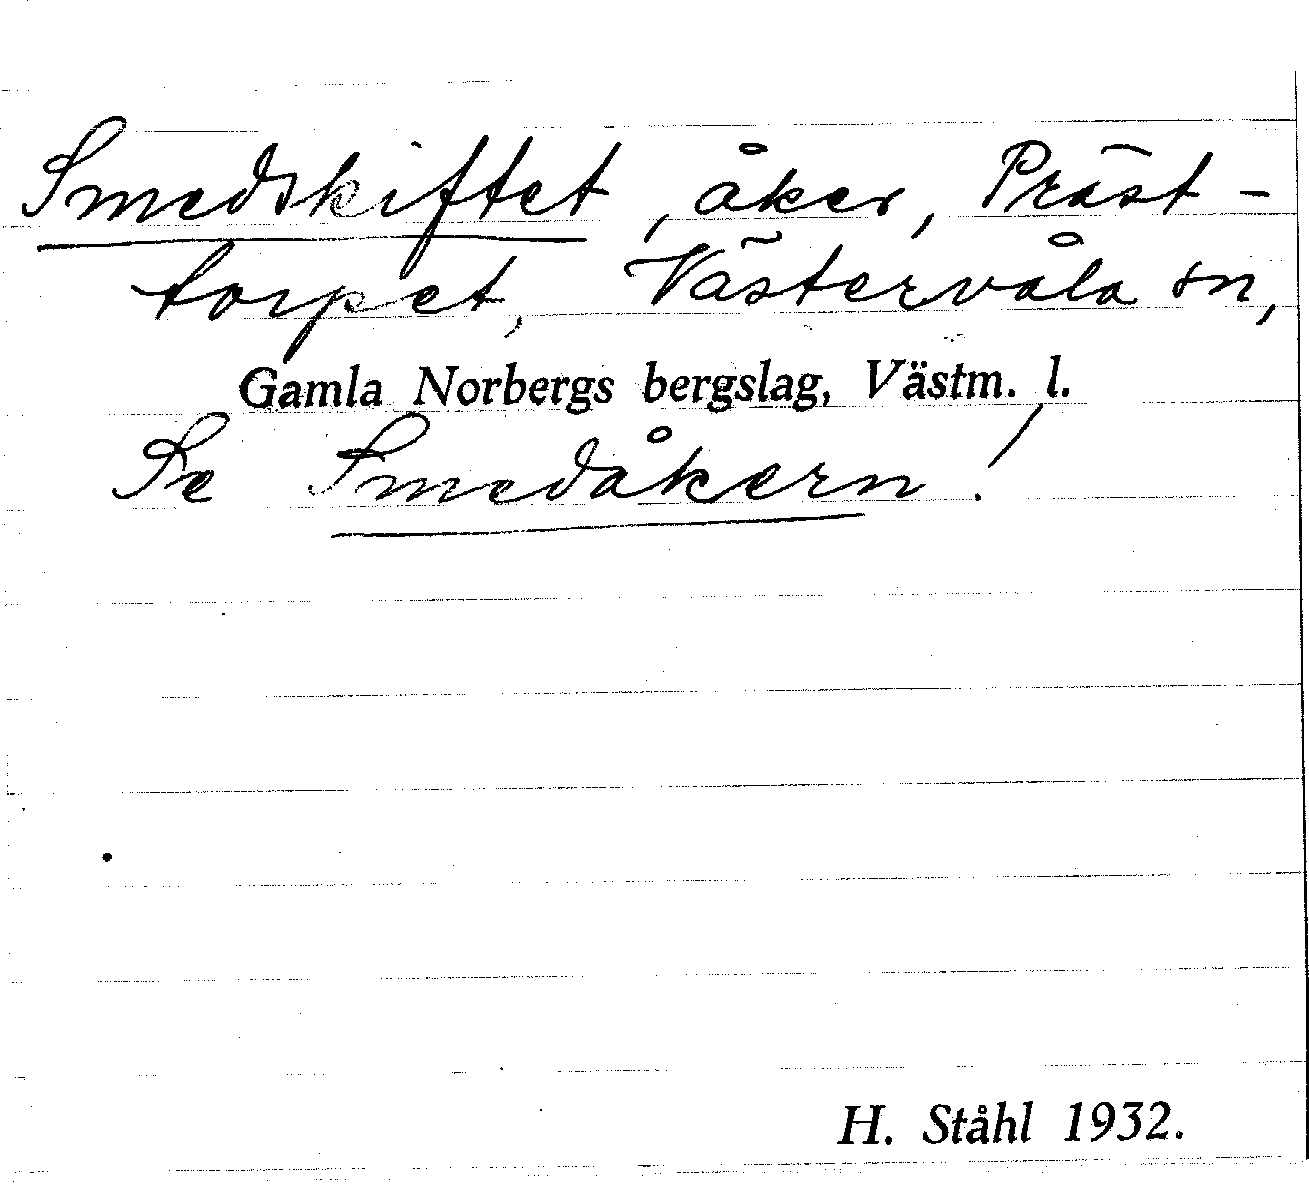 Smedskiftet, åker, Präst-
torpet, Västervåla sn,
Gamla Norbergs bergslag, Västm. l.
Se Smedåkern!
H. Ståhl 1932.